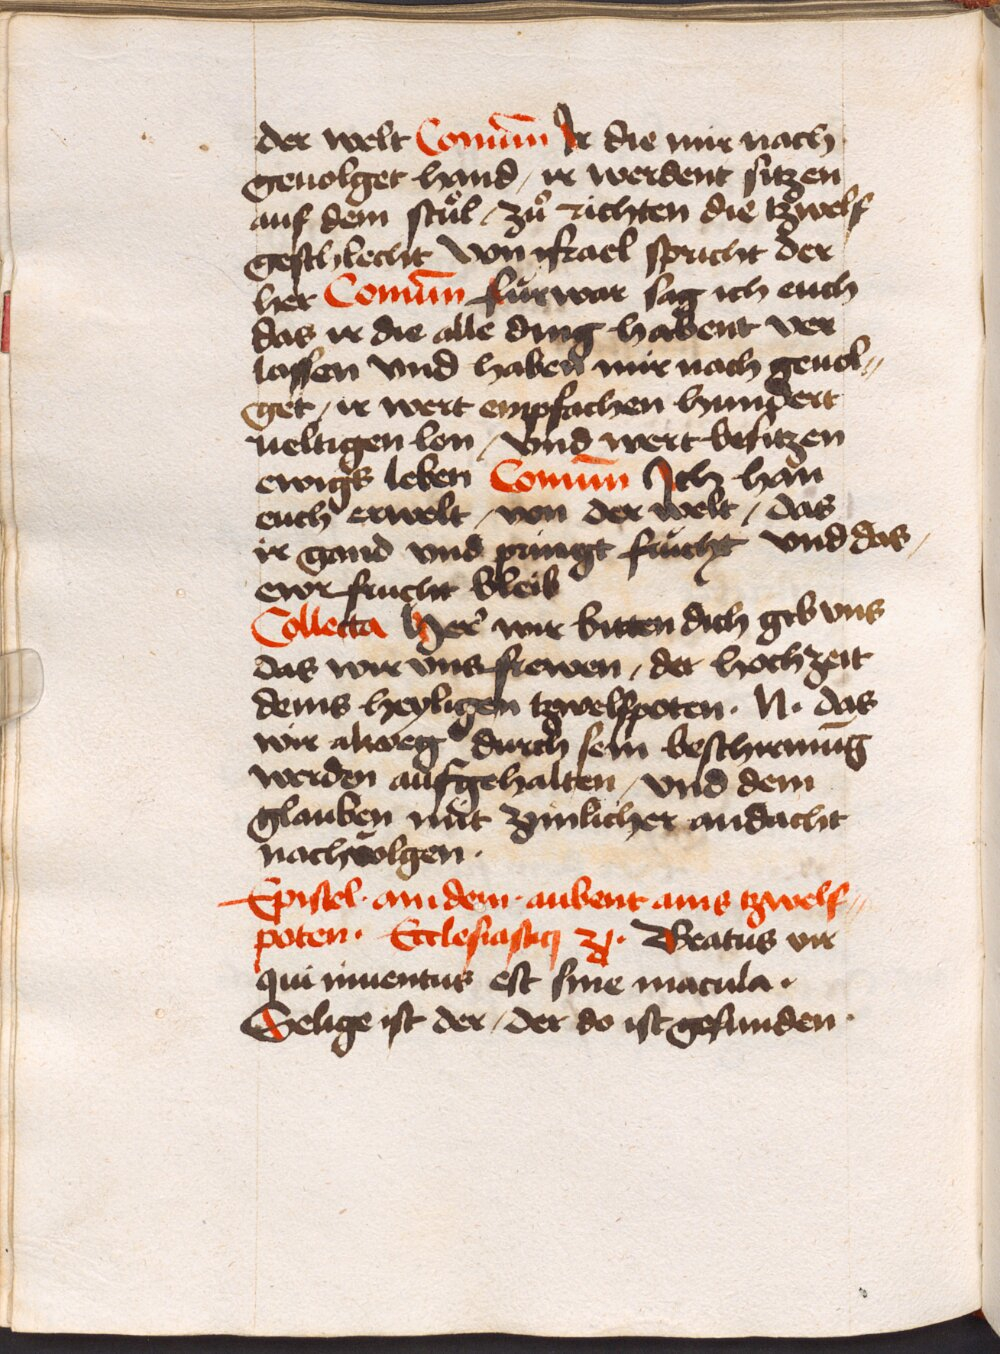 der welt Comūn Ir die mir nach
geuolget hand / ir werdent sitzen
auf dem stůl / zů richten die tzwelf
geschlecht von israel spricht der
her Comūn fürwar sag ich euch
das ir die alle ding habent ver
lassen vnd haben mir nach geuol„
get / ir wert empfachen hundert
ueltigen lon / vnd wert besitzen
ewigs leben Comūn Ich hān
euch erwelt / von der welt / das
ir gand vnd pringt frucht vnd das /
ewr frucht bleib
Collecta Her wir bitten dich geb vns
das wir vns frewen / der hochzeit
deins heyligen tzwelfpoten · N · das
wir alweg durch sein beschirmūg
werden aufgehalten / vnd dem
glauben mit zimlicher andacht
nachvolgen ·
Epistel · an dem · aubent ains tzwelf„
poten · Ecclesiastici · Beatus vir
qui inuentus est sine macula ·
Selige ist der / der do ist gefunden ·